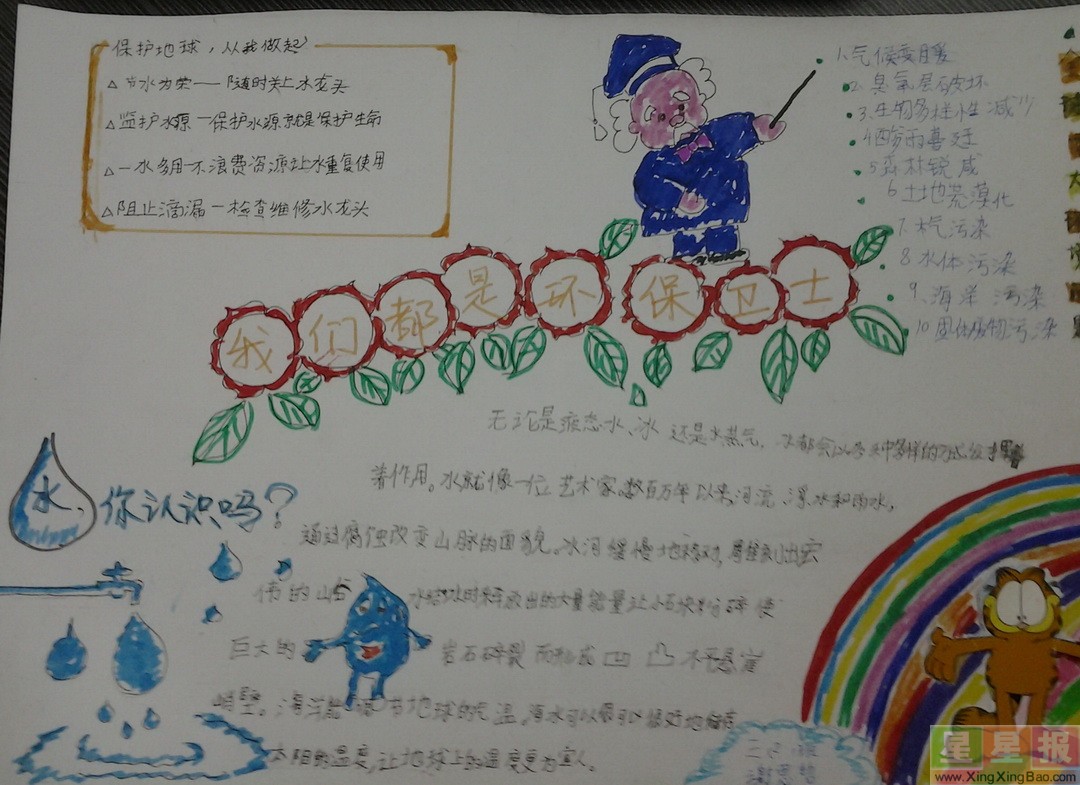 保护地球，从我做起
△节水为荣——随时关上水龙头
△监护水源—保护水源就是保护生命
△一水多用—不浪费资源让水重复使用
△阻止滴漏—检查维修水龙头
1.气候变暖
2.臭氧层破坏
3.生物多样性减少
4酸雨蔓延
5森林锐减
6土地荒漠化
7.气污染
8水体污染
9、海洋污染
10固体废物污染
我们都是环保卫士
水,你认识吗?
无论是液态水、冰还是水蒸气,水都会以多样的方式发挥
着作用。水就像一位艺术家,数百万年以来河流、冰和雨水,
通过腐蚀改变山脉的面貌。冰河缓慢地移动,雕刻出宏
伟的山谷 水结冰时释放出的大量能量让小石块粉碎使
巨大的 岩石碎裂而形成凹凸不平悬崖
峭壁。海洋能调节地球的气温,海水可以
太阳的温度,让地球上的温度更为宜人。
星星报
www.XingXingBao.com